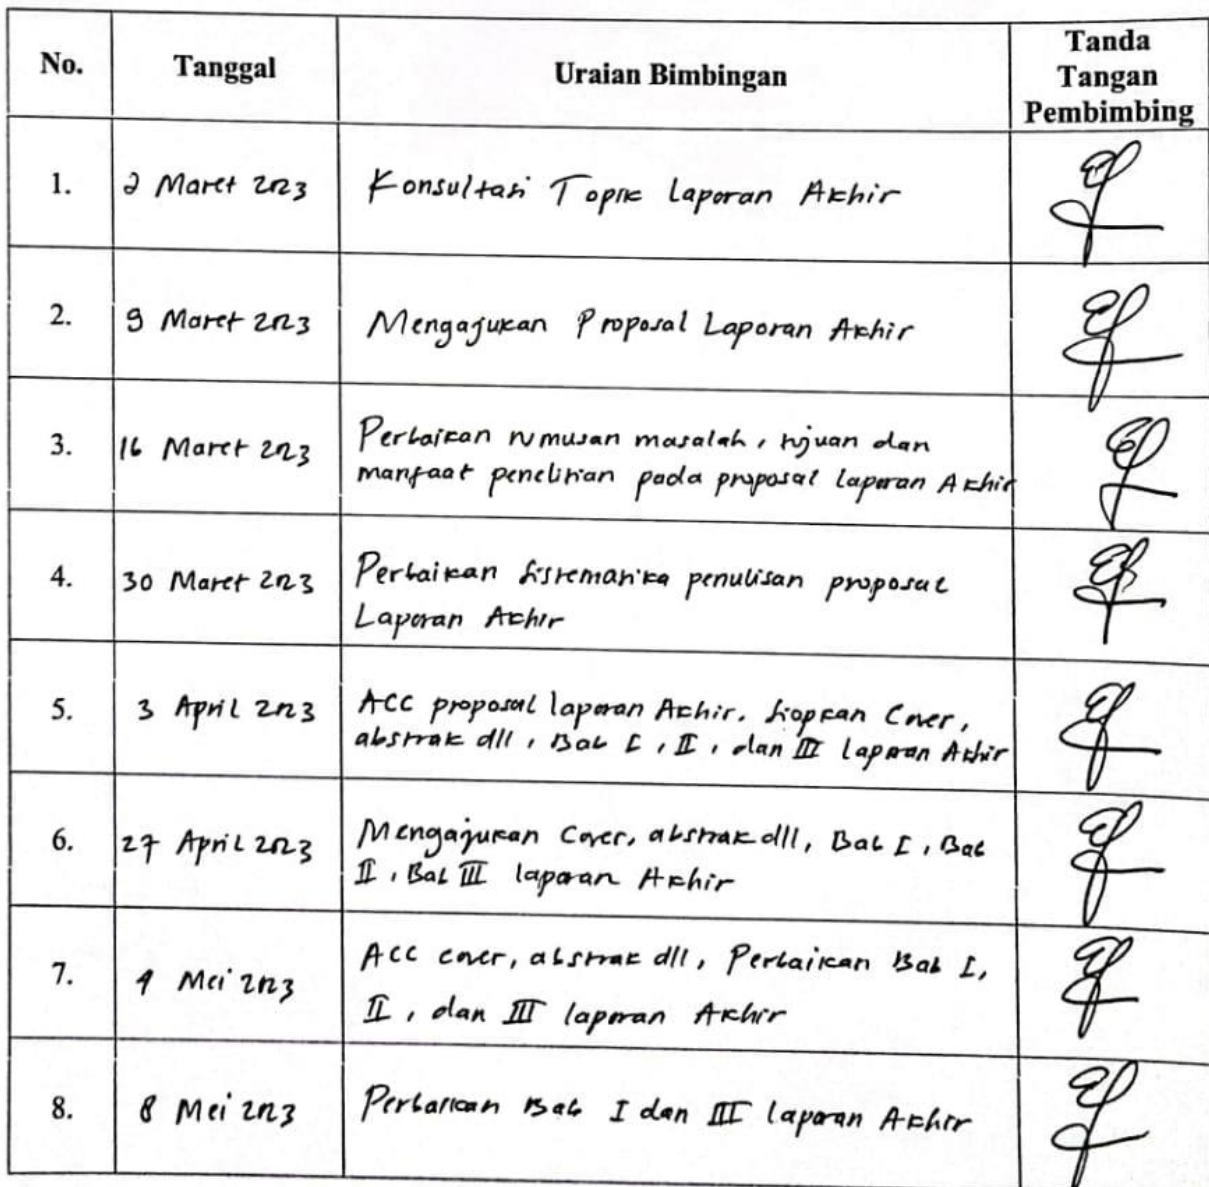 No. Tanggal Uraian Bimbingan Tanda
Tangan
Pembimbing
1. 2 Maret 2023 Konsultasi Topik Laporan Akhir
2. 9 Maret 2023 Mengajukan Proposal Laporan Akhir
3. 16 Maret 2023 Perbaikan rumusan masalah, tujuan dan
manfaat penelitian pada proposal laporan Akhir
4. 30 Maret 2023 Perbaikan sistematika penulisan proposal
Laporan Akhir
5. 3 April 2023 ACC proposal laporan Akhir. Siapkan Cover,
abstrak dll, Bab I, II, dan III laporan Akhir
6. 27 April 2023 Mengajukan Cover, abstrak dll, Bab I, Bab
II, Bab III laporan Akhir
7. 4 Mei 2023 ACC cover, abstrak dll, Perbaikan Bab I,
II, dan III laporan Akhir
8. 8 Mei 2023 Perbaikan Bab I dan III laporan Akhir